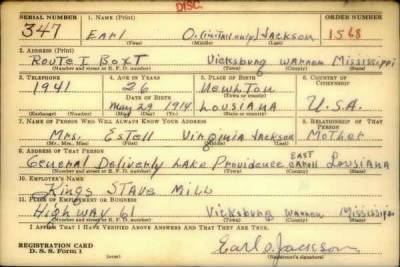 DISC.
SERIAL NUMBER 1. NAME (Print) ORDER NUMBER
347 Earl O. (initial only) Jackson 1568
2. ADDRESS (Print)
Route 1 Box 7 Vicksburg Warren Mississippi
(Number and street or R. F. D. number) (Town) (County) (State)
3. TELEPHONE 4. AGE IN YEARS 5. PLACE OF BIRTH 6. COUNTRY OF CITIZENSHIP
1941 26
DATE OF BIRTH (Town or county)
May 29 1914 Lousiana U.S.A.
(Exchange) (Number) (Mo.) (Day) (Yr.) (State or country)
7. NAME OF PERSON WHO WILL ALWAYS KNOW YOUR ADDRESS 8. RELATIONSHIP OF THAT PERSON
Mrs. Estell Virginia Jackson Mother
(Mr., Mrs., Miss) (First) (Middle) (Last)
9. ADDRESS OF THAT PERSON
General Delivery Lake Providence EAST Lousiana
(Number and street or R. F. D. number) (Town) (County) (State)
10. EMPLOYER'S NAME
Kings Stave Mill
11. PLACE OF EMPLOYMENT OR BUSINESS
Highway 61 Vicksburg Warren Mississippi
(Number and street or R. F. D. number) (Town) (County) (State)
I AFFIRM THAT I HAVE VERIFIED ABOVE ANSWERS AND THAT THEY ARE TRUE.
REGISTRATION CARD
D. S. S. Form 1
Earl O. Jackson
(Registrant's signature)